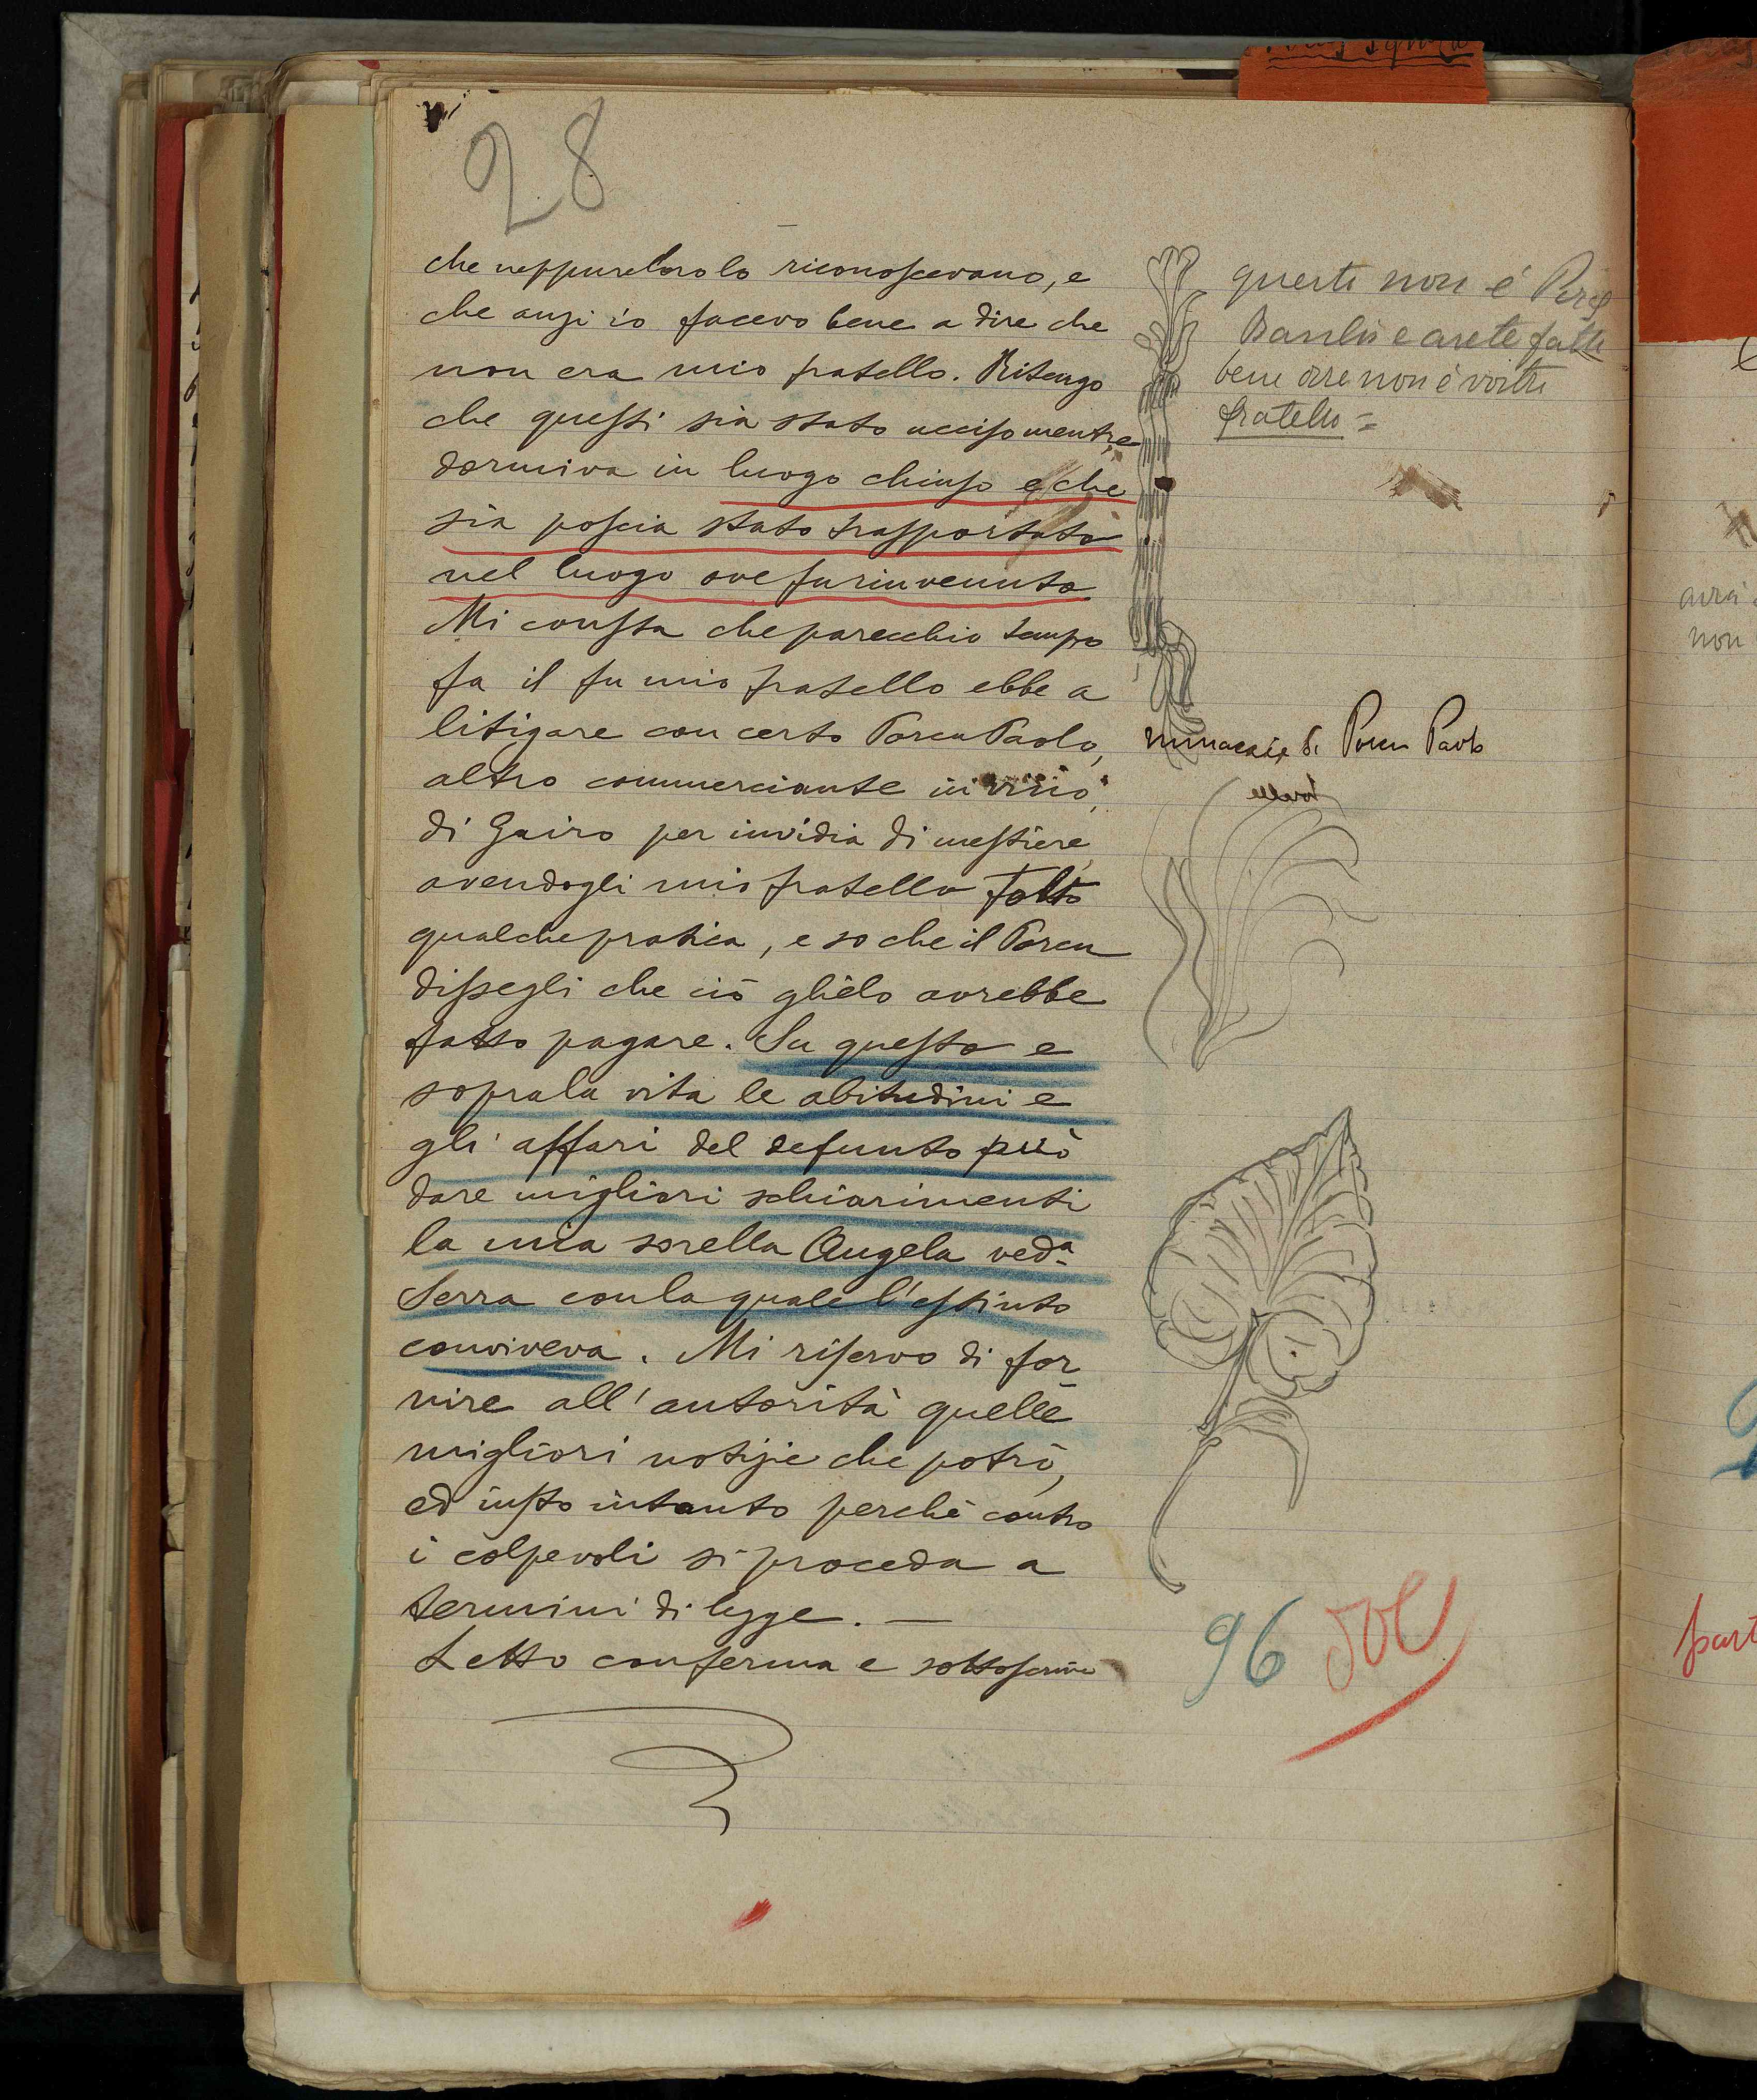 28
che neppure loro lo riconoscevano, e
che anzi io facevo bene a dire che
non era mio fratello. Ritengo
che questi sia stato ucciso mentre
dormiva in luogo chiuso e che
sia poscia stato trasportato
nel luogo ove fu rinvenuto.
Mi consta che parecchio tempo
fa il fu mio fratello ebbe a
litigare con certo Porcu Paolo,
altro commerciante in vino,
di Gairo per invidia di mestiere,
avendogli mio fratello tolto
qualche pratica, e so che il Porcu
dissegli che ciò glielo avrebbe
fatto pagare. Su questo e
sopra la vita le abitudini e
gli affari del defunto può
dare migliori schiarimenti
la mia sorella Angela ved.a
Serra con la quale l'estinto
conviveva. Mi riservo di for
nire all'autorità quelle
migliori notizie che potrò,
ed insto intanto perchè contro
i colpevoli si proceda a
termini di legge. —
Letto conferma e sottoscrive
questi non è
e avete fatto
bene dire non è vostro
fratello =
minaccie di Porcu Paolo
96
avrà
non
part